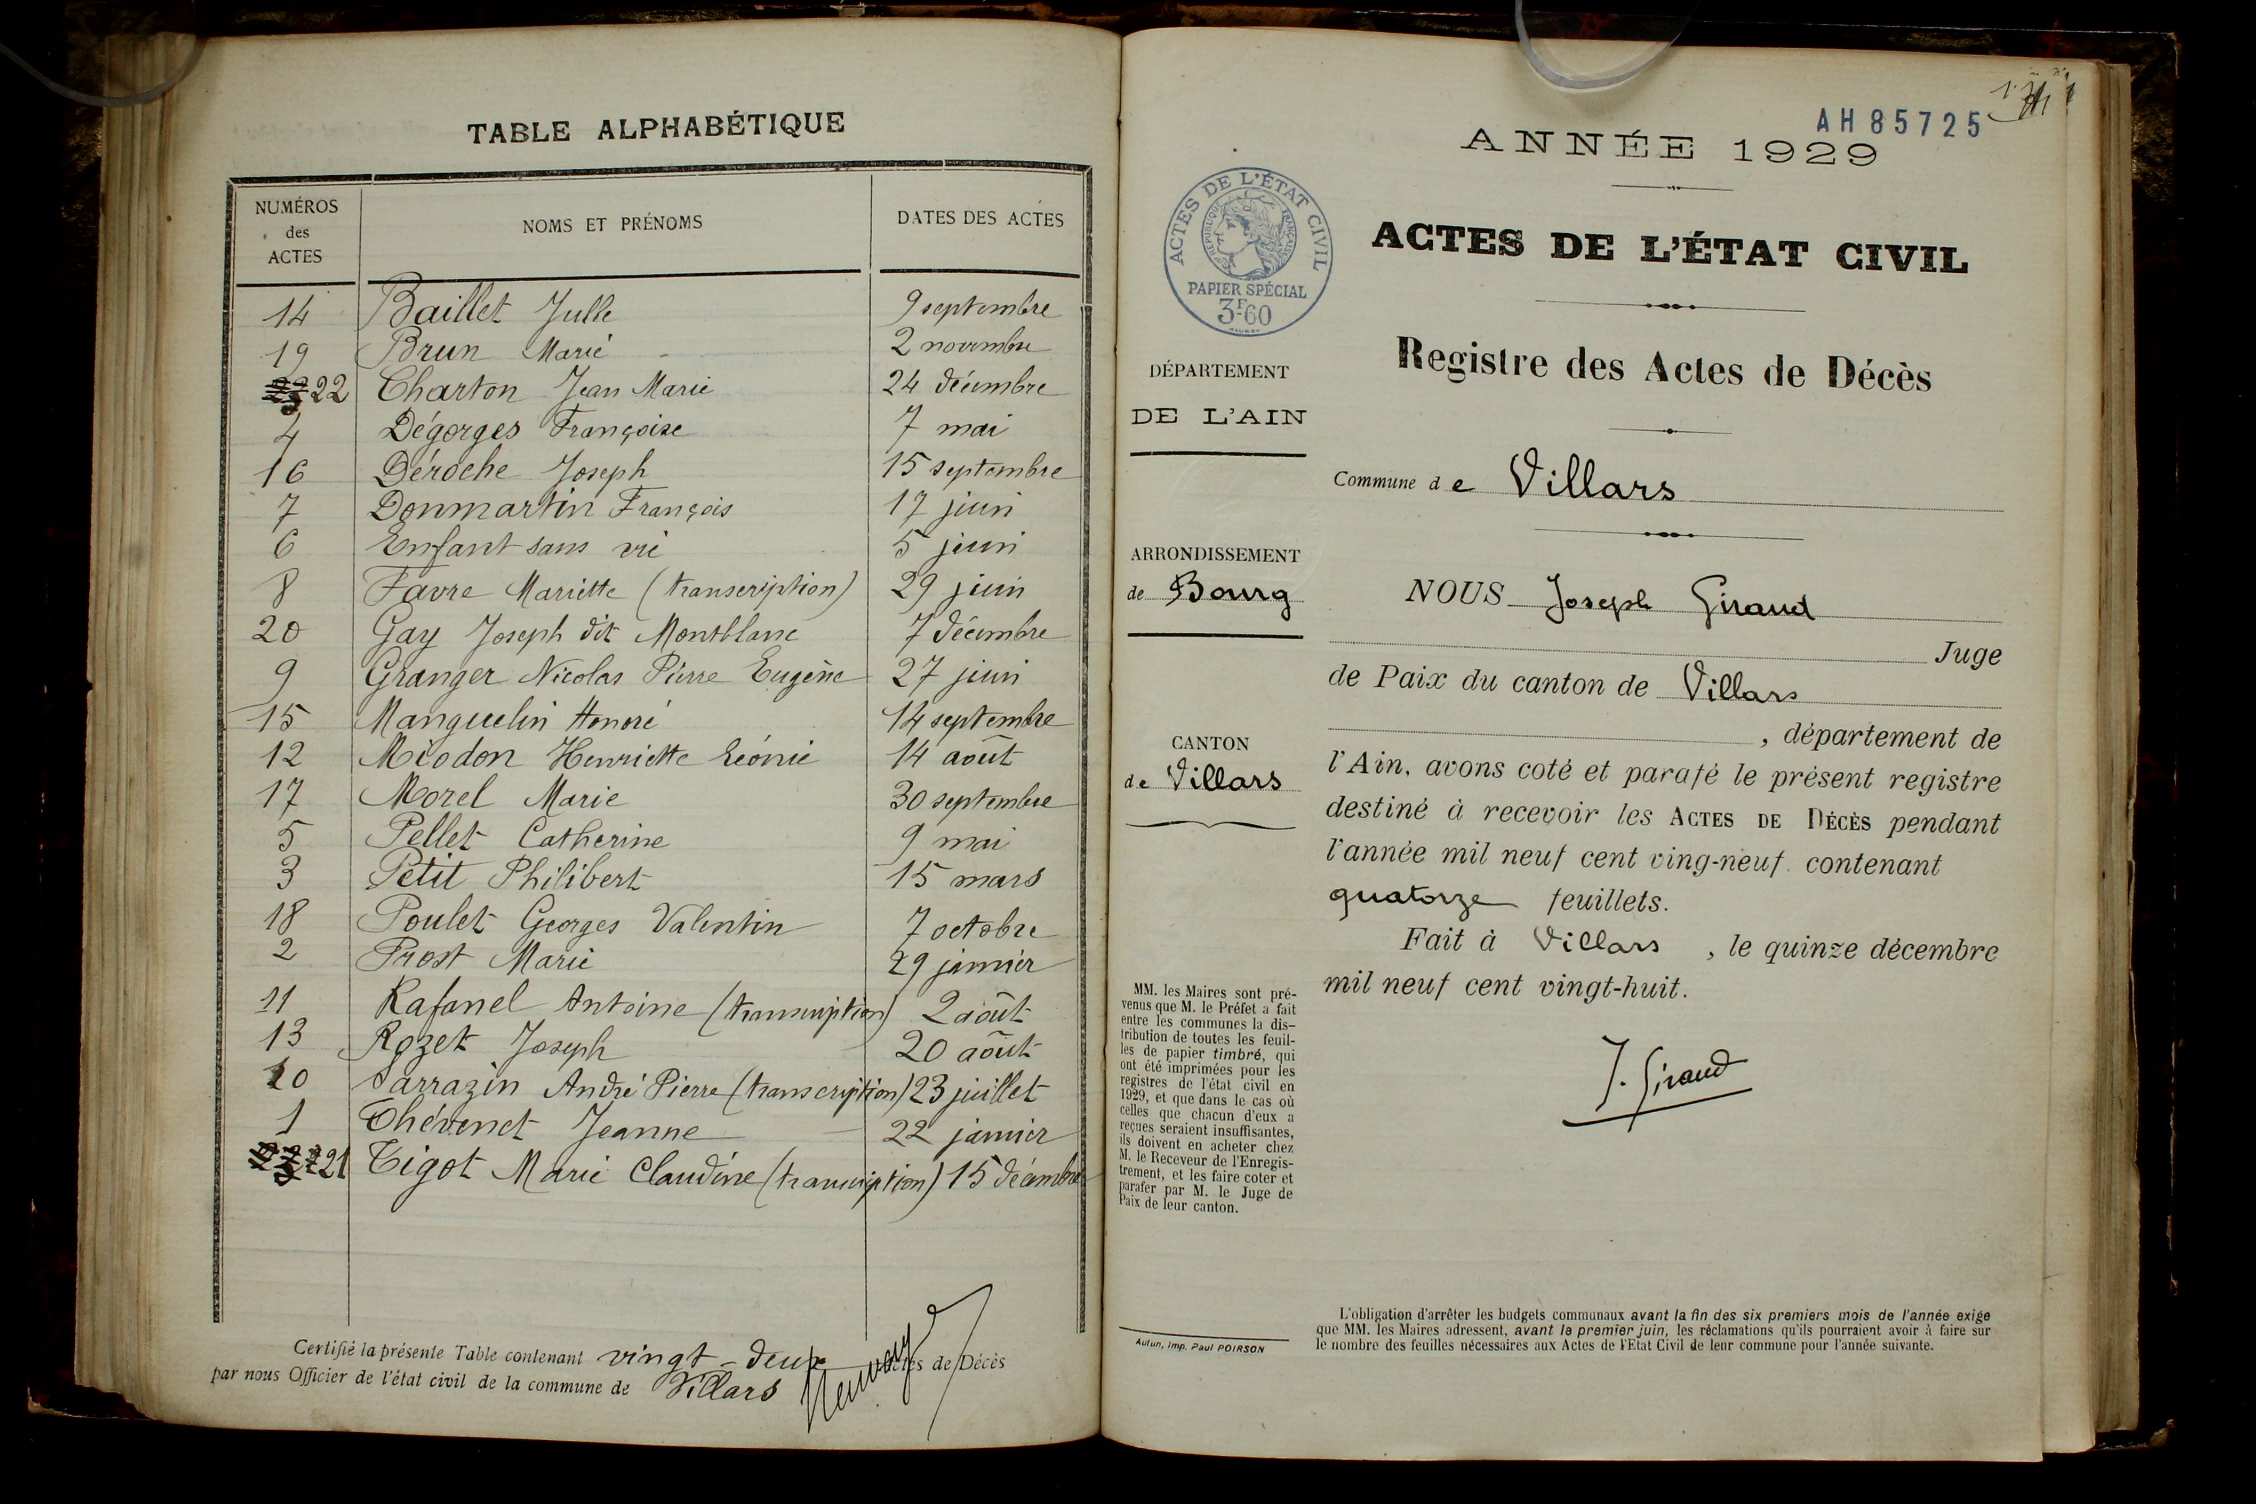 TABLE ALPHABÉTIQUE
NUMÉROS des ACTES NOMS ET PRÉNOMS DATES DES ACTES
14 Baillet Julle 9 septembre
19 Brun Marie 2 novembre
22 Charton Jean Marie 24 décembre
4 Dégorges Françoise 7 mai
16 Déroche Joseph 15 septembre
7 Donmartin François 17 juin
6 Enfant sans vie 5 juin
8 Favre Mariette (transcription) 29 juin
20 Gay Joseph dit Montblanc 7 décembre
9 Granger Nicolas Pierre Eugène 27 juin
15 Manguelin Honoré 14 septembre
12 Miodon Henriette Léonie 14 août
17 Morel Marie 30 septembre
5 Pellet Catherine 9 mai
3 Petit Philibert 15 mars
18 Poulet Georges Valentin 7 octobre
2 Prost Marie 29 janvier
11 Rafanel Antoine (transcription) 2 août
13 Rozet Joseph 20 août
10 Sarrazin André Pierre (transcription) 23 juillet
1 Thévenet Jeanne 22 janvier
21 Tigot Marie Claudine (transcription) 15 décembre
Certifié la présente Table contenant vingt-deux actes de Décès
par nous Officier de l'état civil de la commune de Villars
AH 85725
ANNÉE 1929
ACTES DE L'ÉTAT CIVIL
RÉPUBLIQUE FRANÇAISE
PAPIER SPÉCIAL
3F60
ACTES DE L'ÉTAT CIVIL
Registre des Actes de Décès
DÉPARTEMENT
DE L'AIN
Commune de Villars
ARRONDISSEMENT
de Bourg
CANTON
de Villars
NOUS Joseph Giraud
Juge
de Paix du canton de Villars
, département de
l'Ain, avons coté et parafé le présent registre
destiné à recevoir les ACTES DE DÉCÈS pendant
l'année mil neuf cent ving-neuf contenant
quatorze feuillets.
Fait à Villars , le quinze décembre
mil neuf cent vingt-huit.
J. Giraud
MM. les Maires sont pré-
venus que M. le Préfet a fait
entre les communes la dis-
tribution de toutes les feuil-
les de papier timbré, qui
ont été imprimées pour les
registres de l'état civil en
1929, et que dans le cas où
celles que chacun d'eux a
reçues seraient insuffisantes,
ils doivent en acheter chez
M. le Receveur de l'Enregis-
trement, et les faire coter et
parafer par M. le Juge de
Paix de leur canton.
Autun, Imp. Paul POIRSON
L'obligation d'arrêter les budgets communaux avant la fin des six premiers mois de l'année exige
que MM. les Maires adressent, avant le premier juin, les réclamations qu'ils pourraient avoir à faire sur
le nombre des feuilles nécessaires aux Actes de l'Etat Civil de leur commune pour l'année suivante.